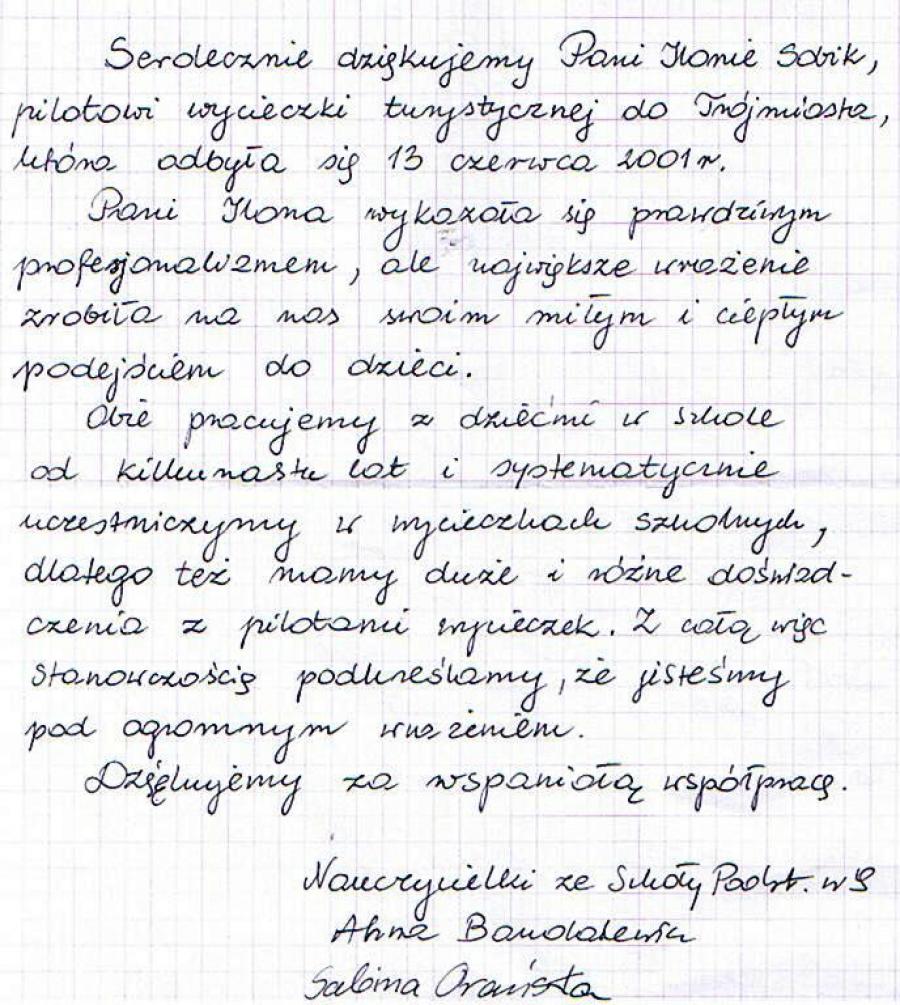 Serdecznie dziękujemy Pani Ilonie Sobik,
pilotowi wycieczki turystycznej do Trójmiasta,
która odbyła się 13 czerwca 2001 r.
Pani Ilona wykazała się prawdziwym
profesjonalizmem, ale największe wrażenie
zrobiła na nas swoim miłym i ciepłym
podejściem do dzieci.
Obie pracujemy z dziećmi w szkole
od kilkunastu lat i systematycznie
uczestniczymy w wycieczkach szkolnych,
dlatego też mamy duże i różne doświad-
czenia z pilotami wycieczek. Z całą więc
stanowczością podkreślamy, że jesteśmy
pod ogromnym wrażeniem.
Dziękujemy za wspaniałą współpracę.
Nauczycielki ze Szkoły Podst. w
Anna
Sabina